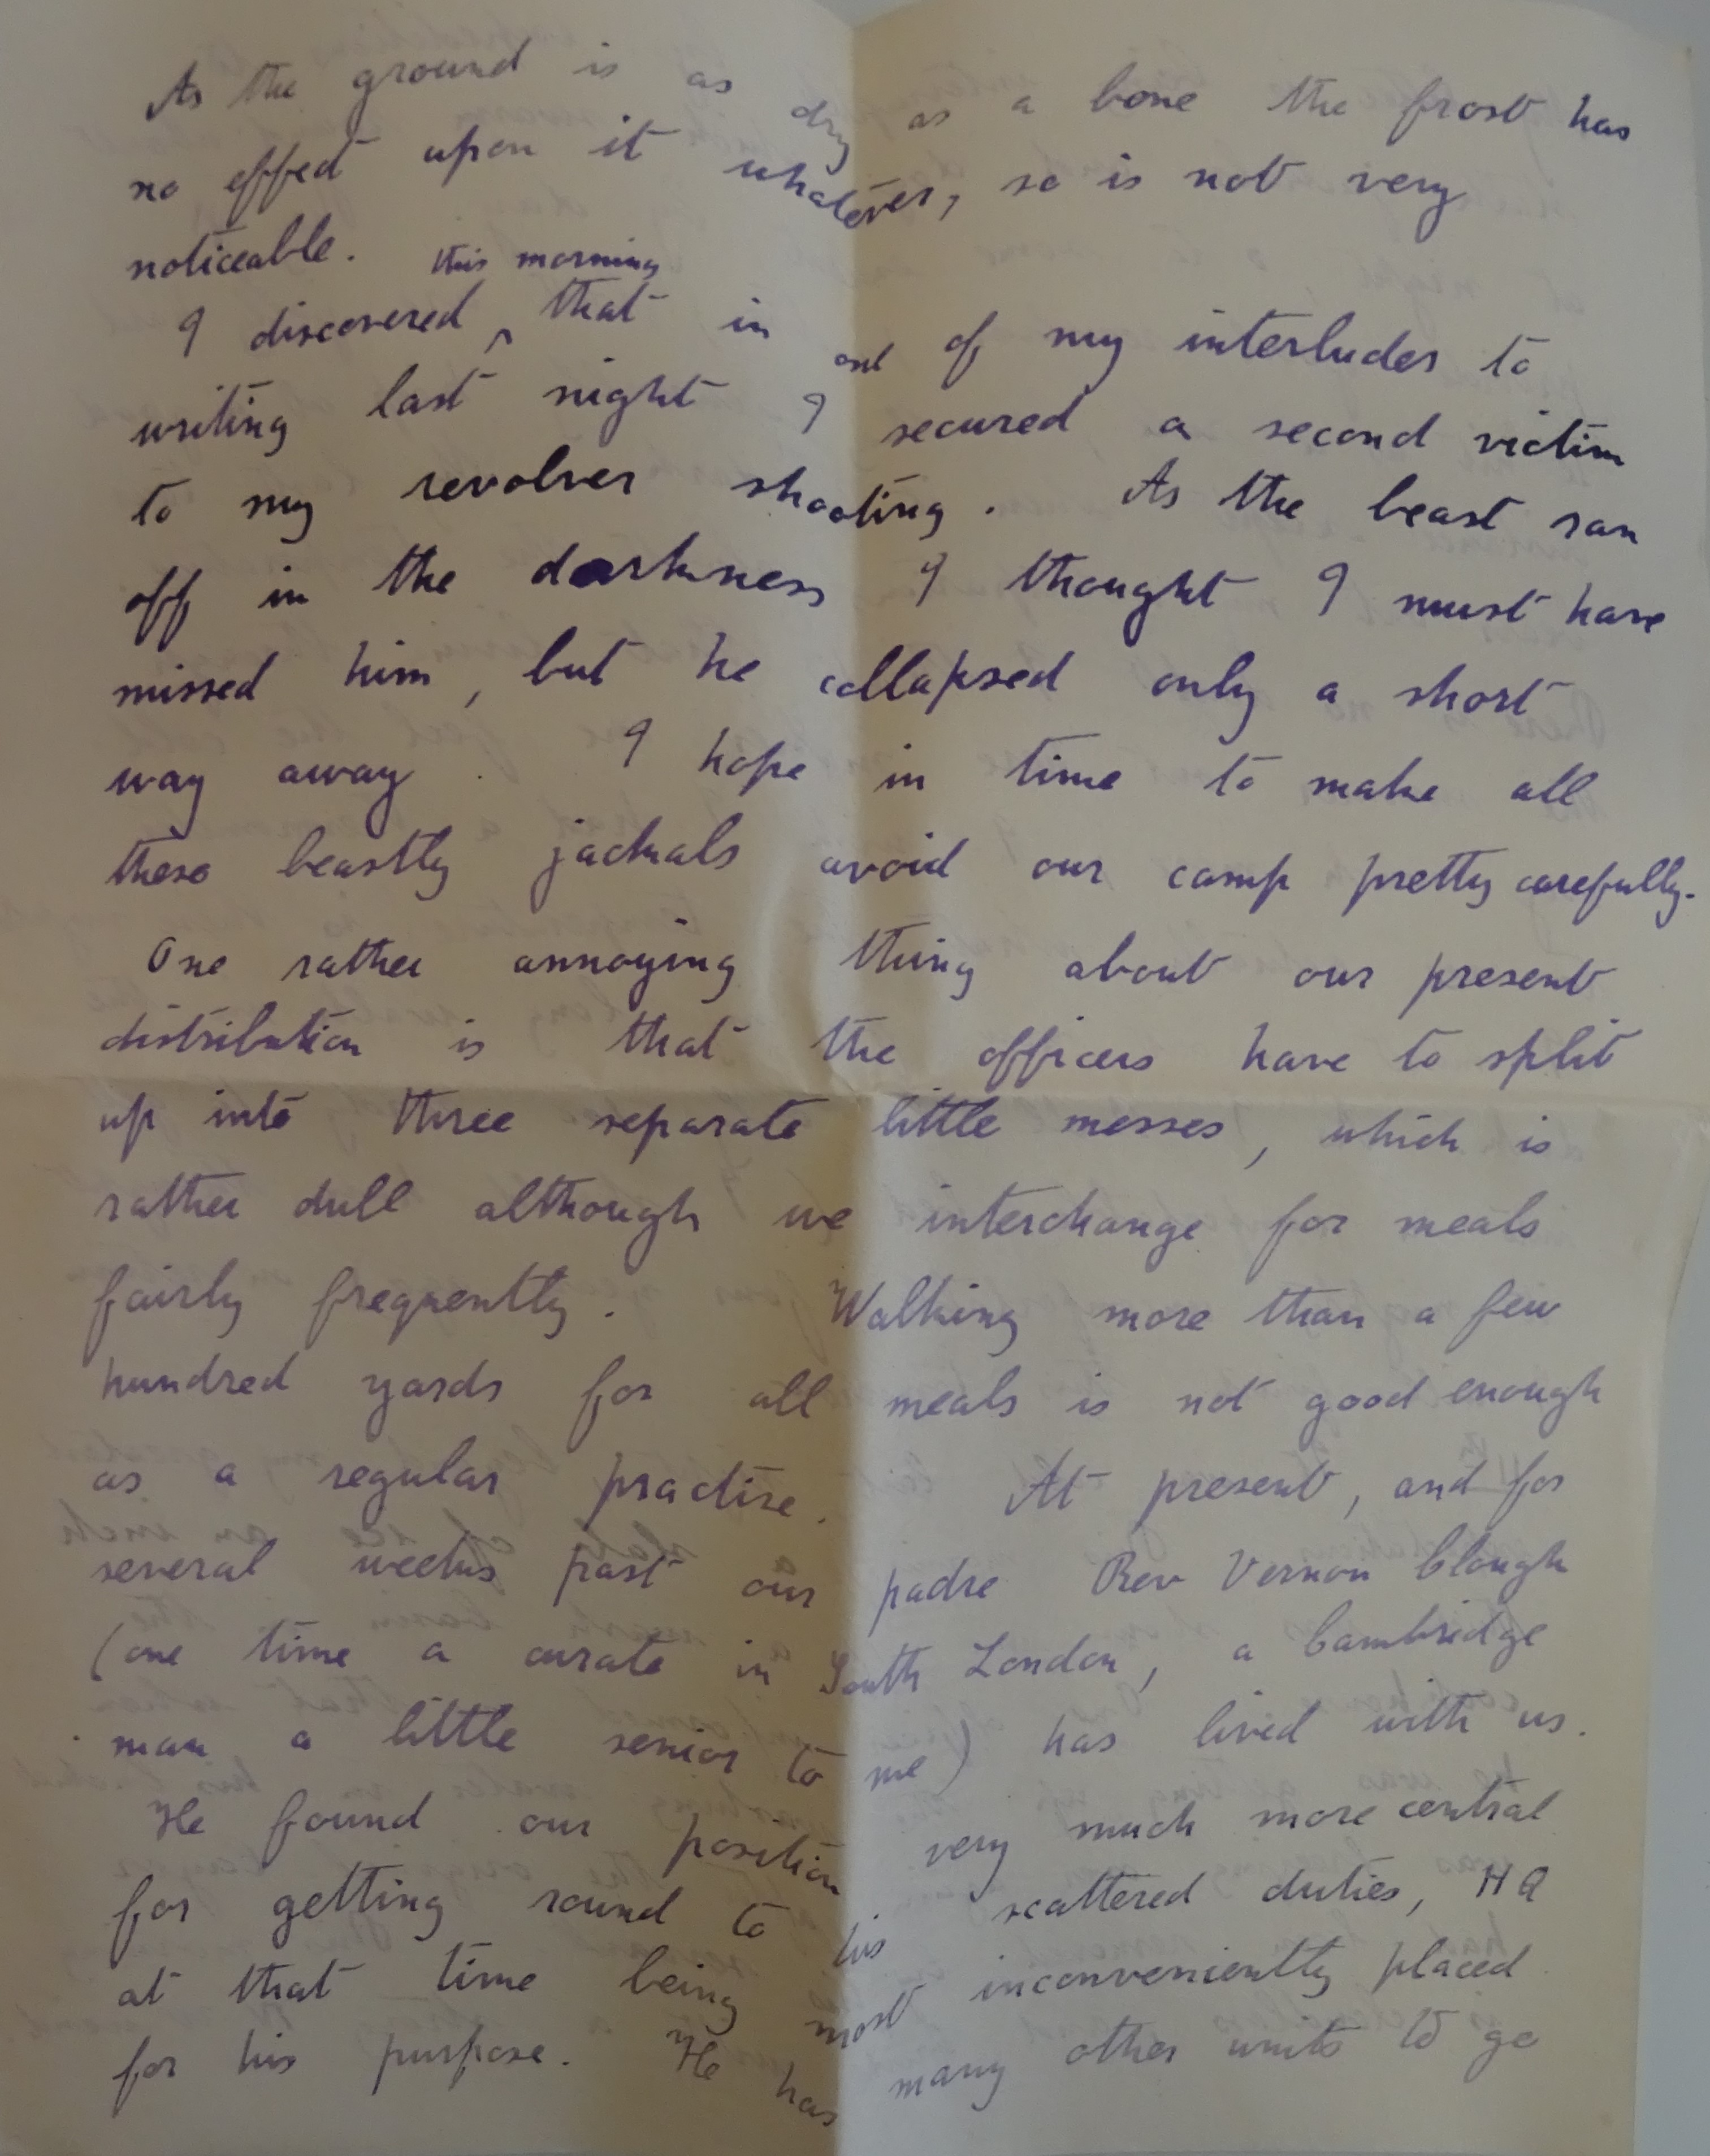 As the ground is as dry as a bone the frost has
no effect upon it whatever, so is not very
noticeable.
this morning
I discovered ^ that in one of my interludes to
writing last night I secured a second victim
to my revolver shooting. As the beast ran
off in the darkness I thought I must have
missed him, but he collapsed only a short
way away. I hope in time to make all
these beastly jackals avoid our camp pretty carefully.
One rather annoying thing about our present
distribution is that the officers have to split
up into three separate little messes, which is
rather dull although we interchange for meals
fairly frequently. Walking more than a few
hundred yards for all meals is not good enough
as a regular practise. At present, and for
several weeks past our padre Rev Vernon Clough
(one time a curate in South London, a Cambridge
man a little senior to me) has lived with us.
He found our position very much more central
for getting round to his scattered duties, HQ
at that time being most inconveniently placed
for his purpose. He has many other units to go